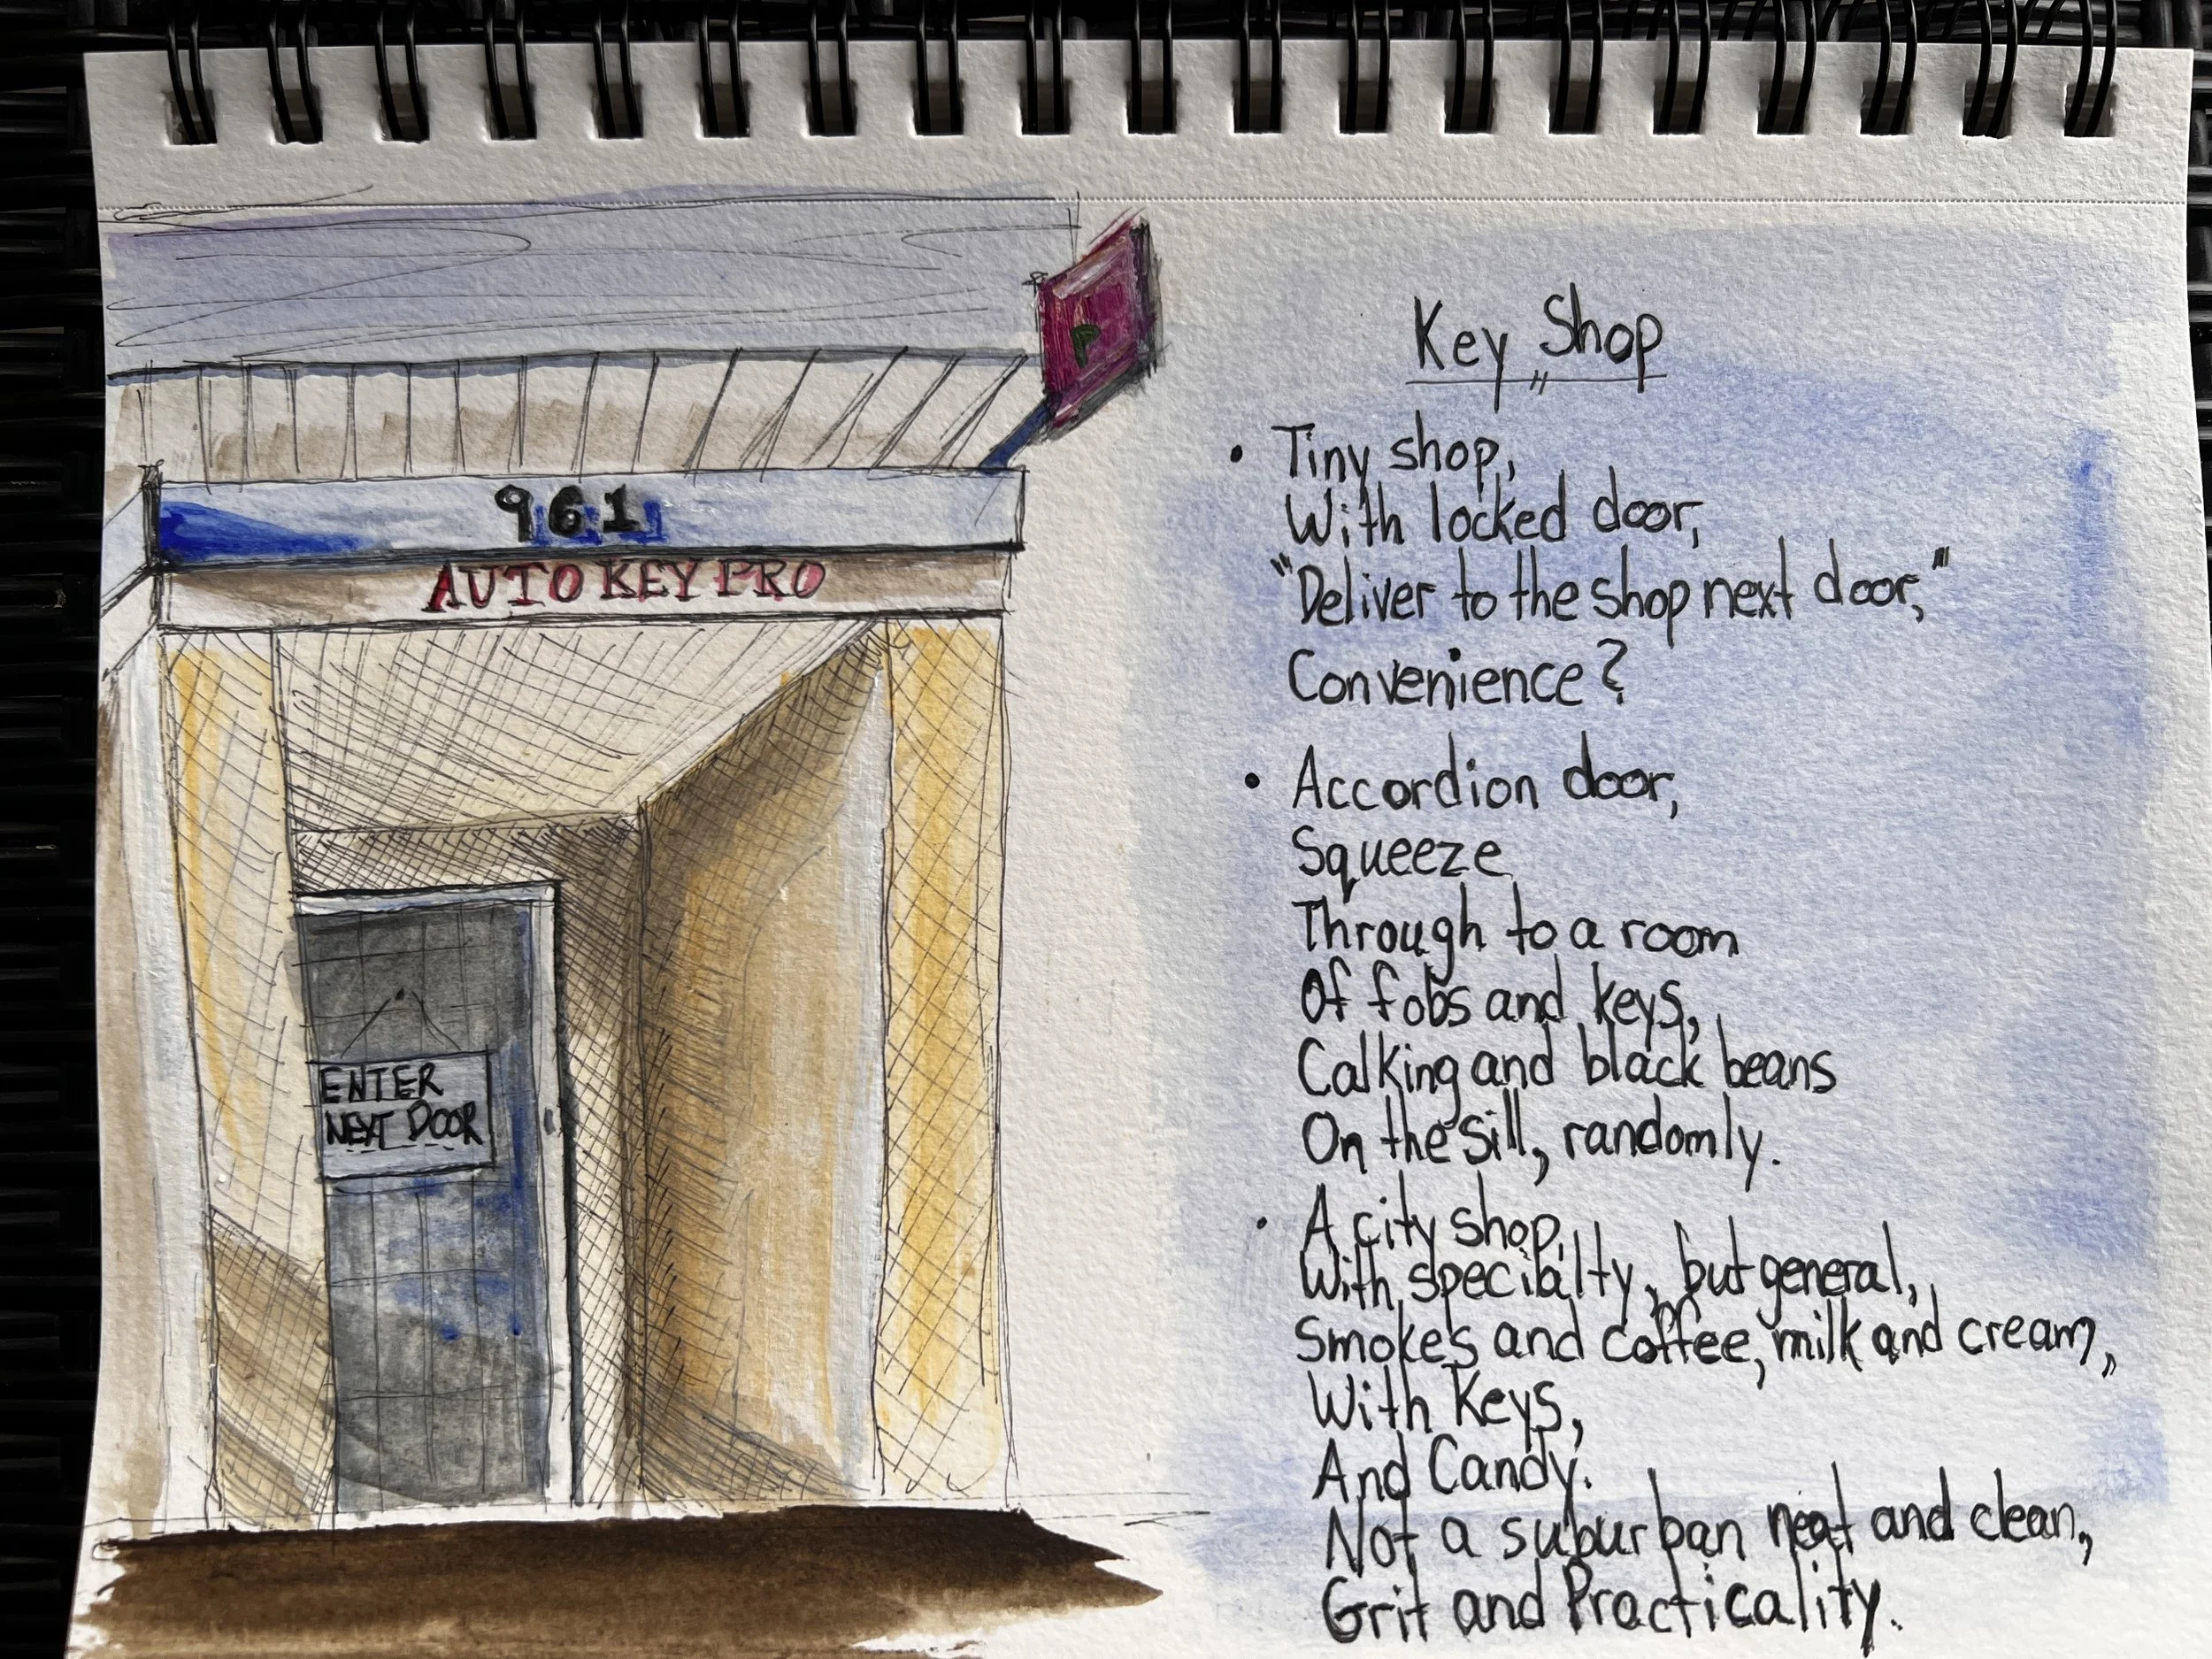 P
961
AUTO KEY PRO
ENTER
NEXT DOOR
Key Shop
• Tiny shop,
With locked door,
"Deliver to the shop next door,"
Convenience?
• Accordion door,
Squeeze
Through to a room
Of fobs and keys,
Calking and black beans
On the sill, randomly.
• A city shop,
With specialty, but general,
Smokes and coffee, milk and cream,
With Keys,
And Candy.
Not a suburban neat and clean,
Grit and Practicality.